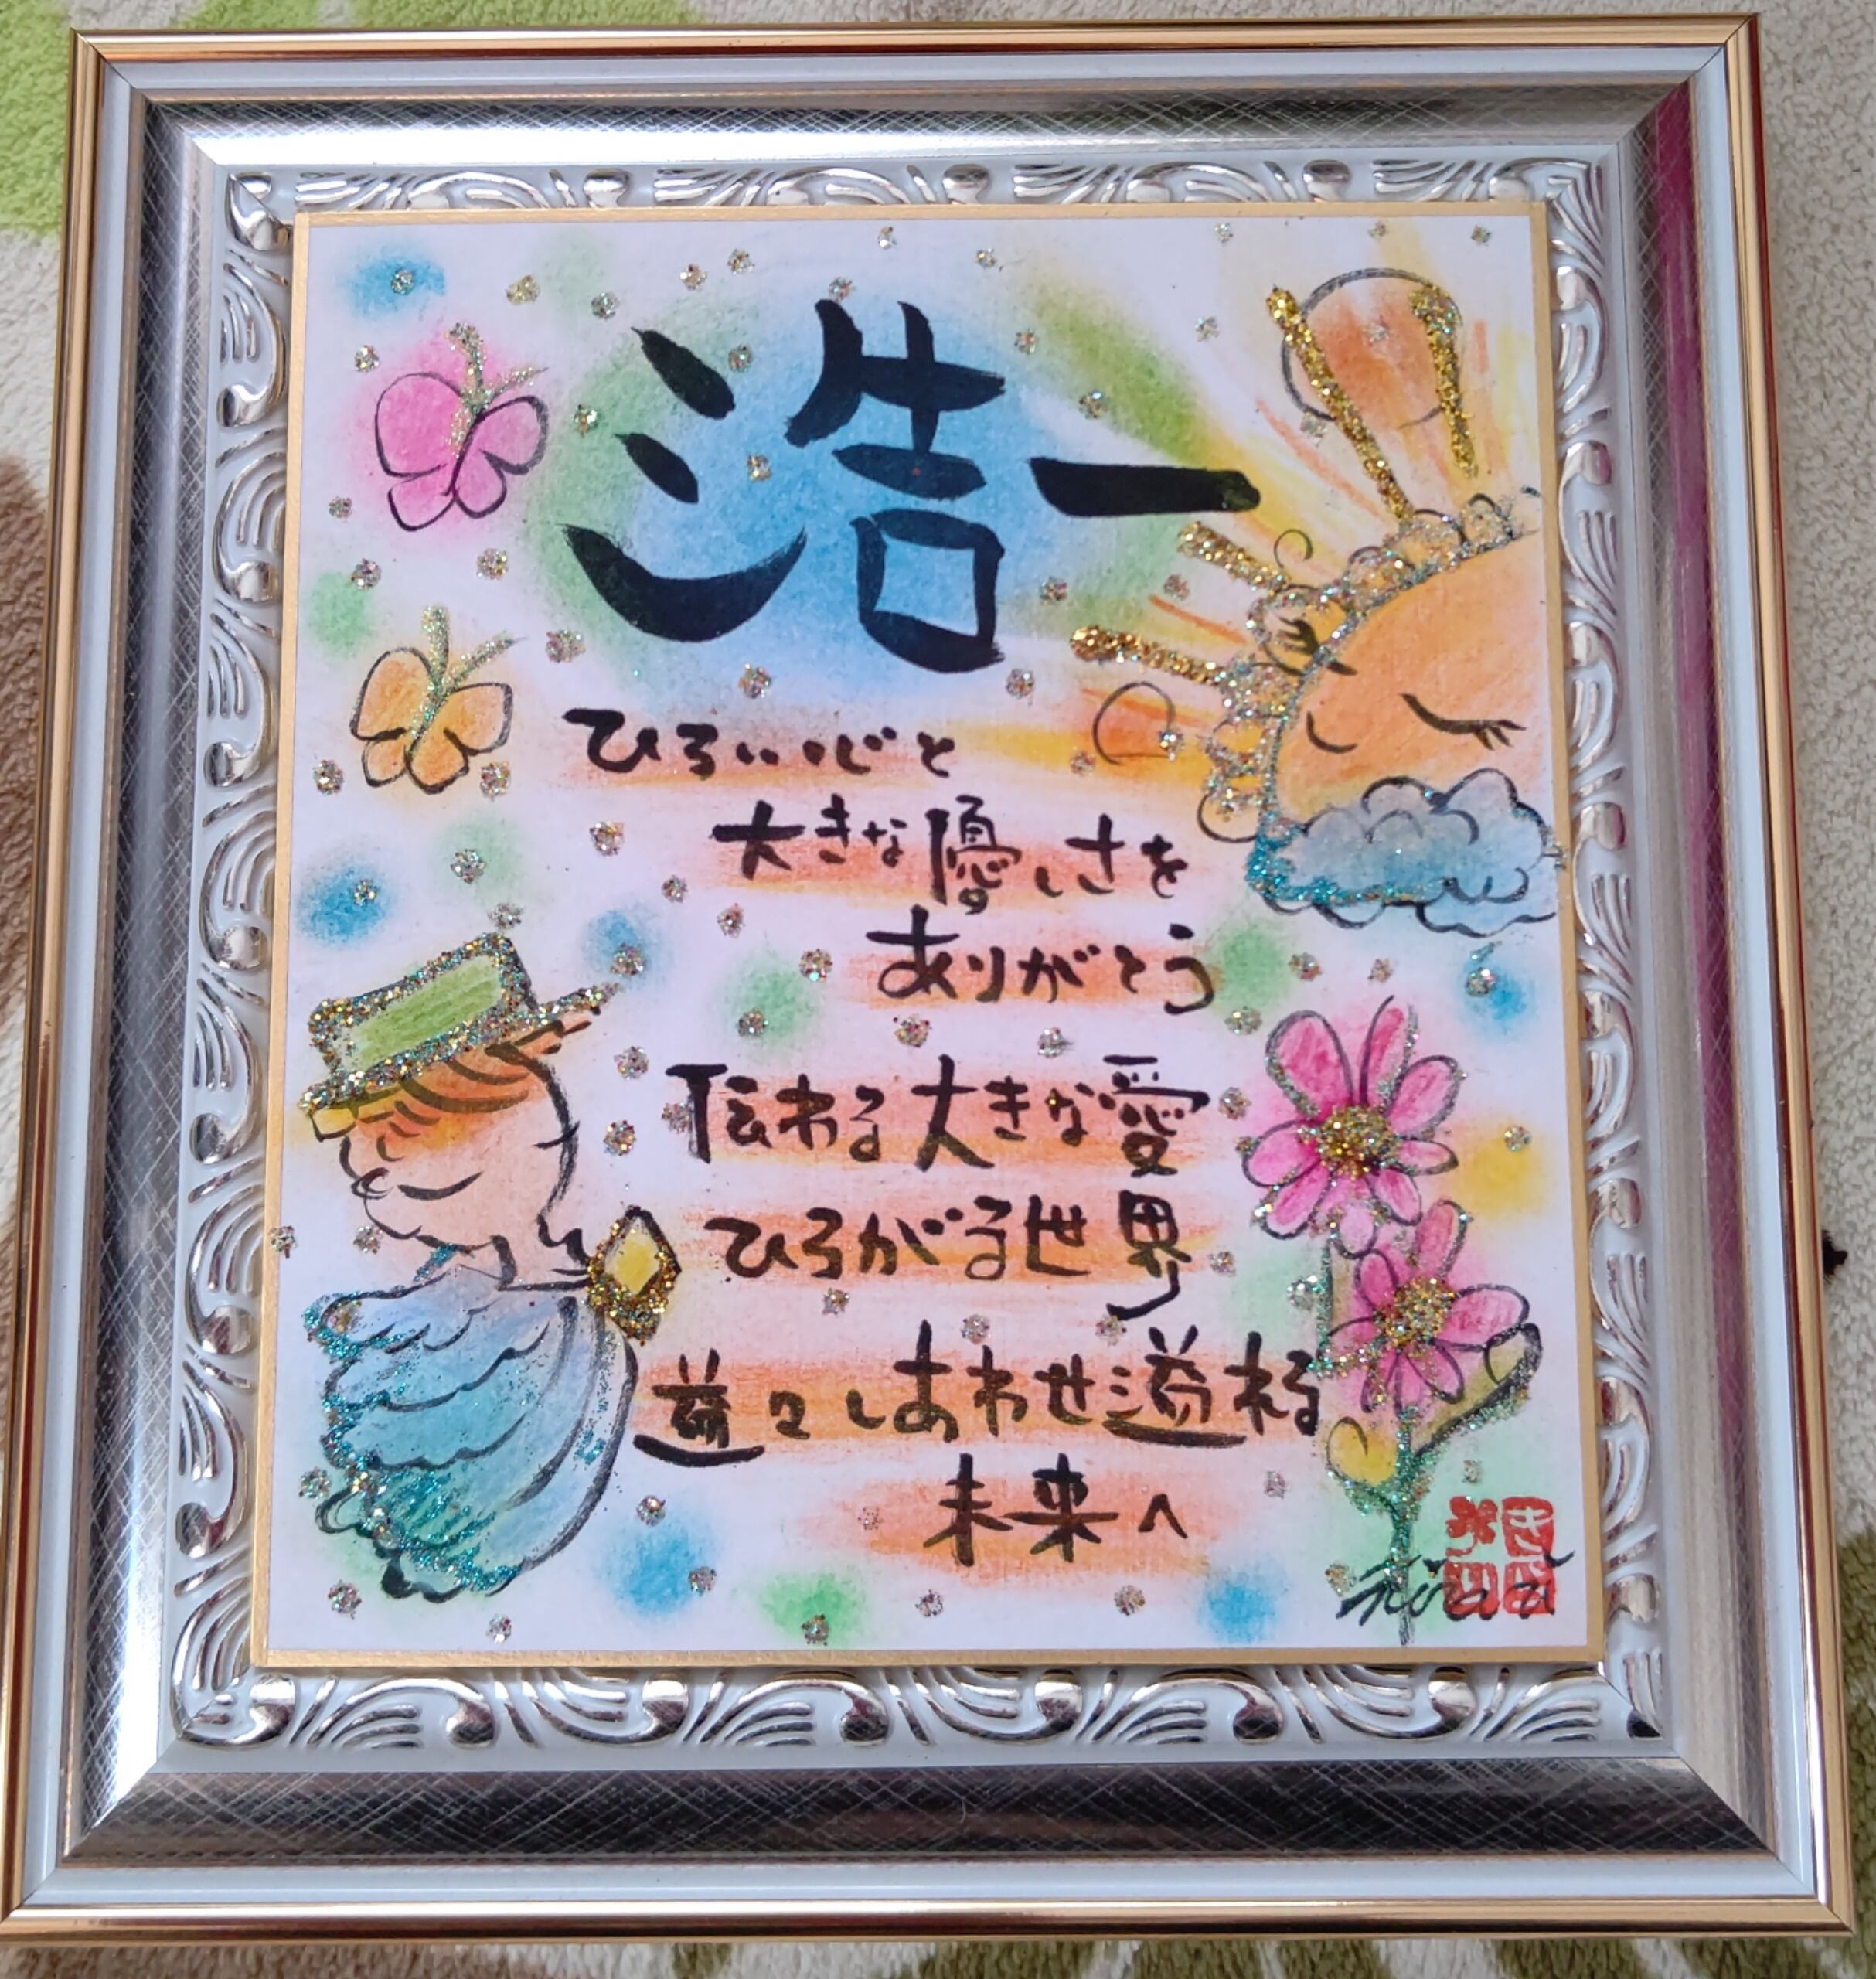 浩一
ひろい心と
大きな優しさを
ありがとう
伝わる大きな愛
ひろがる世界
益々しあわせ溢れる
未来へ